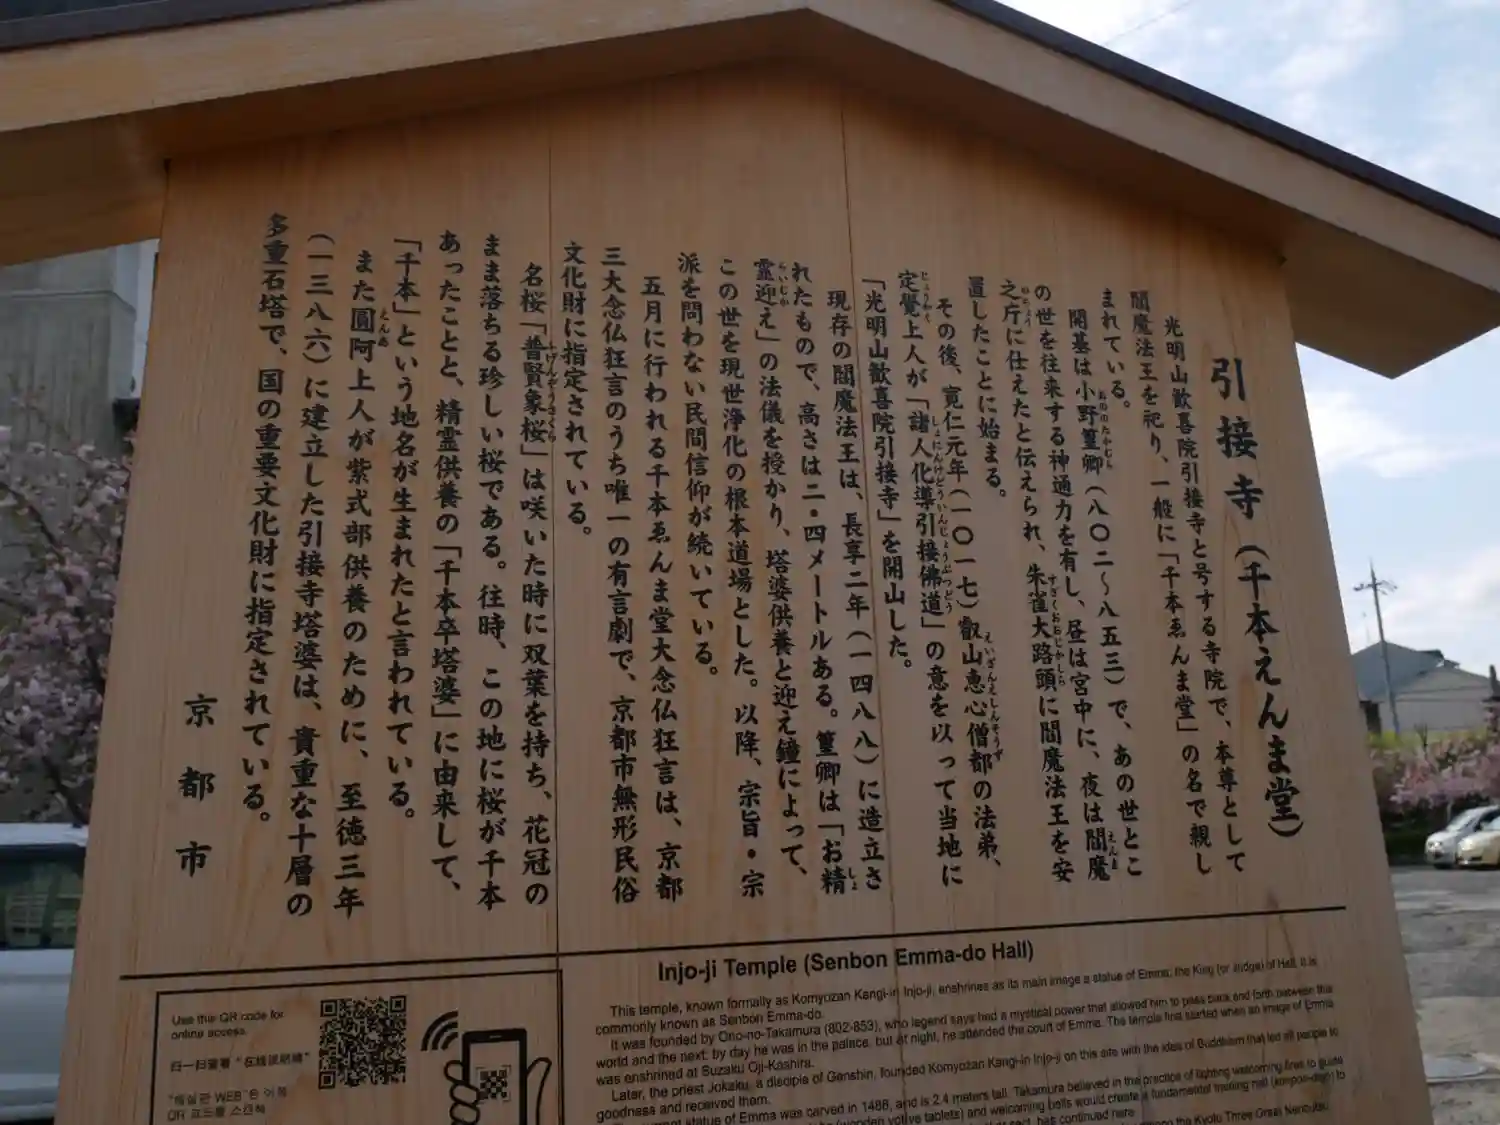 引接寺（千本えんま堂）
光明山歓喜院引接寺と号する寺院で、本尊として
閻魔法王を祀り、一般に「千本ゑんま堂」の名で親し
まれている。
開基は小野篁卿（八〇二〜八五三）で、あの世とこ
の世を往来する神通力を有し、昼は宮中に、夜は閻魔
之庁に仕えたと伝えられ、朱雀大路頭に閻魔法王を安
置したことに始まる。
その後、寛仁元年（一〇一七）叡山恵心僧都の法弟、
定覺上人が「諸人化導引接佛道」の意を以って当地に
「光明山歓喜院引接寺」を開山した。
現存の閻魔法王は、長享二年（一四八八）に造立さ
れたもので、高さは二・四メートルある。篁卿は「お精
霊迎え」の法儀を授かり、塔婆供養と迎え鐘によって、
この世を現世浄化の根本道場とした。以降、宗旨・宗
派を問わない民間信仰が続いている。
五月に行われる千本ゑんま堂大念仏狂言は、京都
三大念仏狂言のうち唯一の有言劇で、京都市無形民俗
文化財に指定されている。
名桜「普賢象桜」は咲いた時に双葉を持ち、花冠の
まま落ちる珍しい桜である。往時、この地に桜が千本
あったことと、精霊供養の「千本卒塔婆」に由来して、
「千本」という地名が生まれたと言われている。
また圓阿上人が紫式部供養のために、至徳三年
（一三八六）に建立した引接寺塔婆は、貴重な十層の
多重石塔で、国の重要文化財に指定されている。
京都市
Injo-ji Temple (Senbon Emma-do Hall)
This temple, known formally as Komyozan Kangi-in Injo-ji, enshrines as its main image a statue of Emma, the King (or Judge) of Hell. It is
commonly known as Senbon Emma-do.
It was founded by Ono-no-Takamura (802-853), who legend says had a mystical power that allowed him to pass back and forth between this
world and the next: by day he was in the palace, but at night, he attended the court of Emma. The temple first started when an image of Emma
was enshrined at Suzaku Oji-Kashira.
Later, the priest Jokaku, a disciple of Genshin, founded Komyozan Kangi-in Injo-ji on this site with the idea of Buddhism that led all people to
goodness and received them.
statue of Emma was carved in 1488, and is 2.4 meters tall. Takamura believed in the practice of lighting welcoming fires to guide
(wooden votive tablets) and welcoming bells would create a fundamental training hall (konpon-dojo) to
has continued here.
the Kyoto Three Great Nenbutsu
Use this QR code for
online access.
扫一扫查看“在线说明牌”
"해설판 WEB"은 이쪽
QR 코드를 스캔해